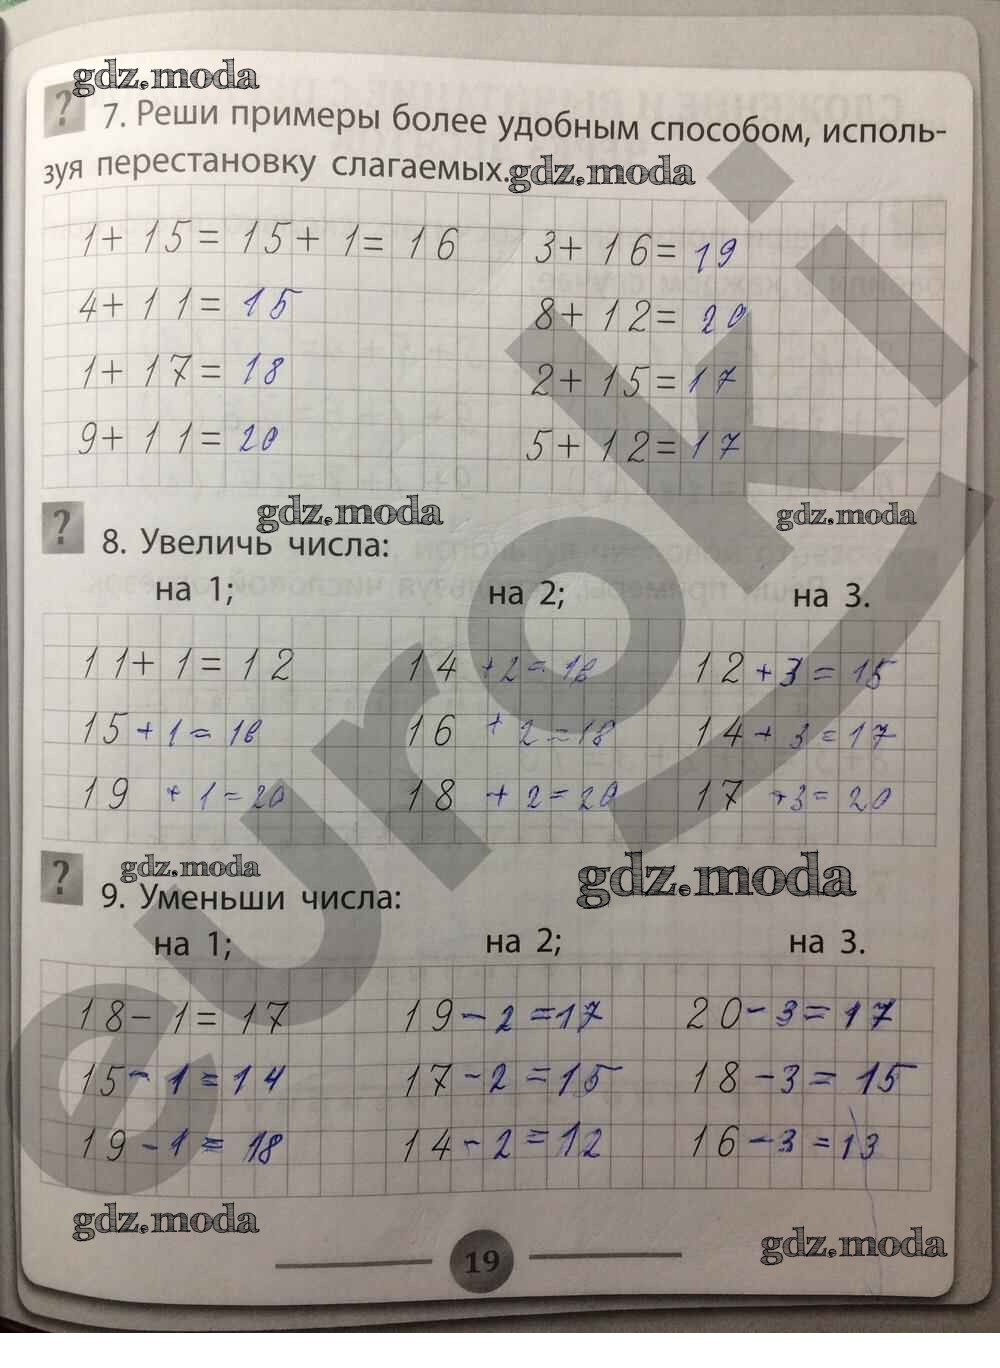 gdz.moda
? 7. Реши примеры более удобным способом, исполь-
зуя перестановку слагаемых. gdz.moda
1+ 15= 15+ 1= 16 3+ 16= 19
4+ 11= 15 8+ 12= 20
1+ 17= 18 2+ 15= 17
9+ 11= 20 5+ 12= 17
gdz.moda gdz.moda
? 8. Увеличь числа:
на 1; на 2; на 3.
11+ 1= 12 14 +2= 16 12 +3= 15
15 +1= 16 16 +2=18 14+ 3=17
19 +1=20 18 +2=20 17 +3= 20
gdz.moda gdz.moda
? 9. Уменьши числа:
на 1; на 2; на 3.
18- 1= 17 19-2=17 20-3=17
15- 1=14 17-2=15 18-3= 15
19-1= 18 14-2=12 16-3=13
gdz.moda gdz.moda
19
euroki